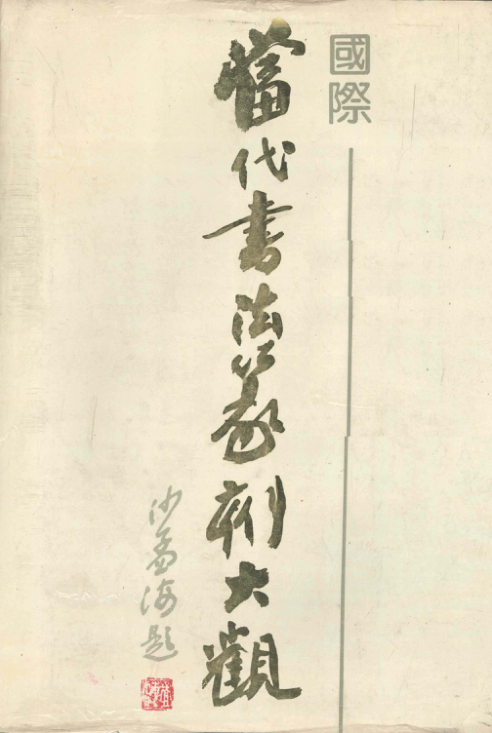 國際
當代书法篆刻大觀
沙孟海題